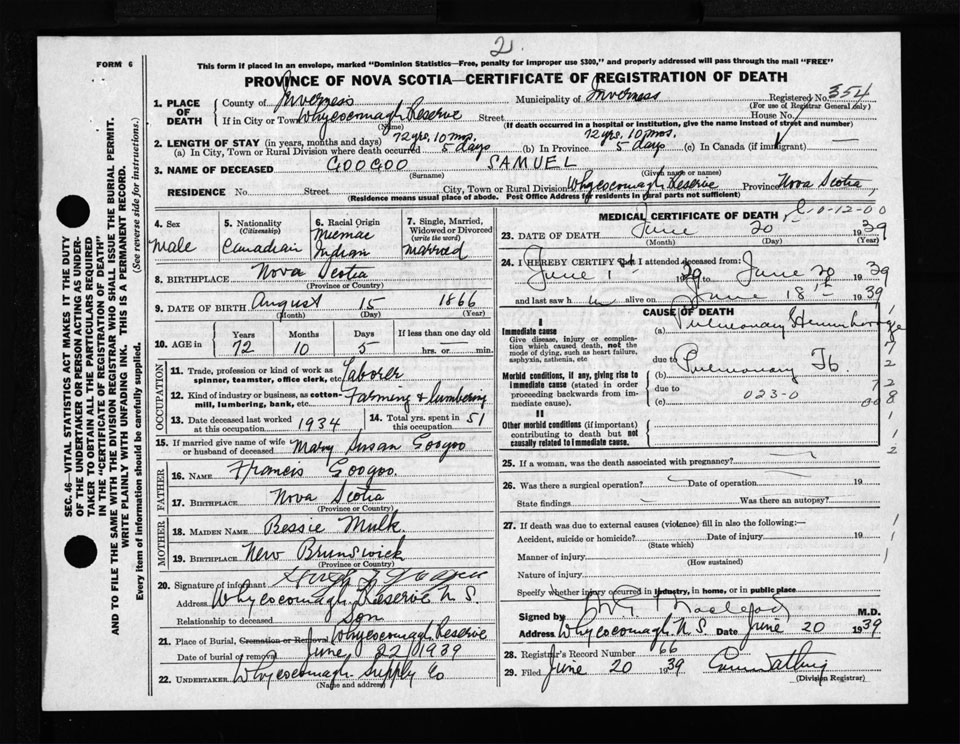 2.
FORM 6
This form if placed in an envelope, marked "Dominion Statistics—Free, penalty for improper use $300," and properly addressed will pass through the mail "FREE"
PROVINCE OF NOVA SCOTIA—CERTIFICATE OF REGISTRATION OF DEATH
1. PLACE OF DEATH
County of Inverness Municipality of Inverness Registered No. 354
(For use of Registrar General only)
If in City or Town Whycocomagh Reserve Street House No.
(Name) (If death occurred in a hospital or institution, give the name instead of street and number)
2. LENGTH OF STAY (in years, months and days) 72 yrs, 10 mos. 72 yrs, 10 mos.
(a) In City, Town or Rural Division where death occurred 5 days (b) In Province 5 days (c) In Canada (if immigrant) —
3. NAME OF DECEASED GOOGOO SAMUEL
(Surname) (Given name or names)
RESIDENCE No. Street City, Town or Rural Division Whycocomagh Reserve Province Nova Scotia
(Residence means usual place of abode. Post Office Address for residents in rural parts not sufficient)
4. Sex
Male
5. Nationality
(Citizenship)
Canadian
6. Racial Origin
Micmac
Indian
7. Single, Married, Widowed or Divorced
(write the word)
Married
8. BIRTHPLACE Nova Scotia
(Province or Country)
9. DATE OF BIRTH August 15 1866
(Month) (Day) (Year)
10. AGE in Years Months Days If less than one day old
72 10 5 hrs. or min.
OCCUPATION
11. Trade, profession or kind of work as spinner, teamster, office clerk, etc. Laborer
12. Kind of industry or business, as cotton-mill, lumbering, bank, etc. Farming & lumbering
13. Date deceased last worked at this occupation 1934
14. Total yrs. spent in this occupation 51
15. If married give name of wife or husband of deceased Mary Susan Googoo
FATHER
16. NAME Francis Googoo.
17. BIRTHPLACE Nova Scotia
(Province or Country)
MOTHER
18. MAIDEN NAME Bessie Mulk.
19. BIRTHPLACE New Brunswick
(Province or Country)
20. Signature of informant
Address Whycocomagh Reserve N.S.
Relationship to deceased Son
21. Place of Burial, Cremation or Removal Whycocomagh Reserve
Date of burial or removal June 22/1939
22. UNDERTAKER Whycocomagh Supply Co
(Name and address)
MEDICAL CERTIFICATE OF DEATH
23. DATE OF DEATH June 20 1939
(Month) (Day) (Year)
24. I HEREBY CERTIFY that I attended deceased from:
June 1st 39 to June 20 1939
and last saw h im alive on June 18th 1939
CAUSE OF DEATH
I
Immediate cause
Give disease, injury or complication which caused death, not the mode of dying, such as heart failure, asphyxia, asthenia, etc
(a) Pulmonary Hemorrhage
due to
Morbid conditions, if any, giving rise to immediate cause (stated in order proceeding backwards from immediate cause).
(b) Pulmonary Tb.
due to
(c) 023-0
II
Other morbid conditions (if important) contributing to death but not causally related to immediate cause.
25. If a woman, was the death associated with pregnancy?
26. Was there a surgical operation? Date of operation 19
State findings Was there an autopsy?
27. If death was due to external causes (violence) fill in also the following:—
Accident, suicide or homicide? Date of injury 19
(State which)
Manner of injury
(How sustained)
Nature of injury
Specify whether injury occurred in industry, in home, or in public place
Signed by M.D.
Address Whycocomagh N.S. Date June 20 1939
28. Registrar's Record Number 66
29. Filed June 20 1939
(Division Registrar)
SEC. 46—VITAL STATISTICS ACT MAKES IT THE DUTY
OF THE UNDERTAKER OR PERSON ACTING AS UNDERTAKER TO OBTAIN ALL THE PARTICULARS REQUIRED
IN THE "CERTIFICATE OF REGISTRATION OF DEATH"
AND TO FILE THE SAME WITH THE DIVISION REGISTRAR WHO SHALL ISSUE THE BURIAL PERMIT.
WRITE PLAINLY WITH UNFADING INK. THIS IS A PERMANENT RECORD.
Every item of information should be carefully supplied. (See reverse side for instructions.)